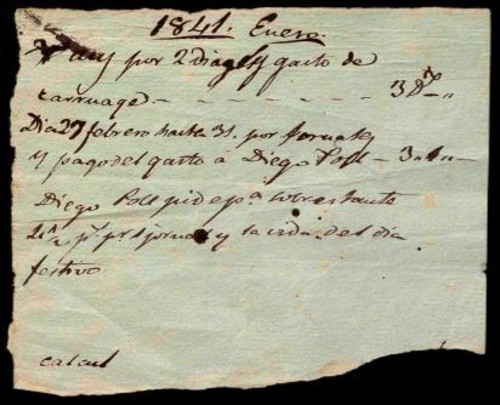 1841. Enero.
por 2 dias y gasto de
carruage - - - - - - - 3 D
Dia 27 febrero hasta 31. por jornales
y pago del gasto á Diego Poll - 3 "
Diego Poll pide pª sobrestante
jornal y la vida del dia
festivo
calcul